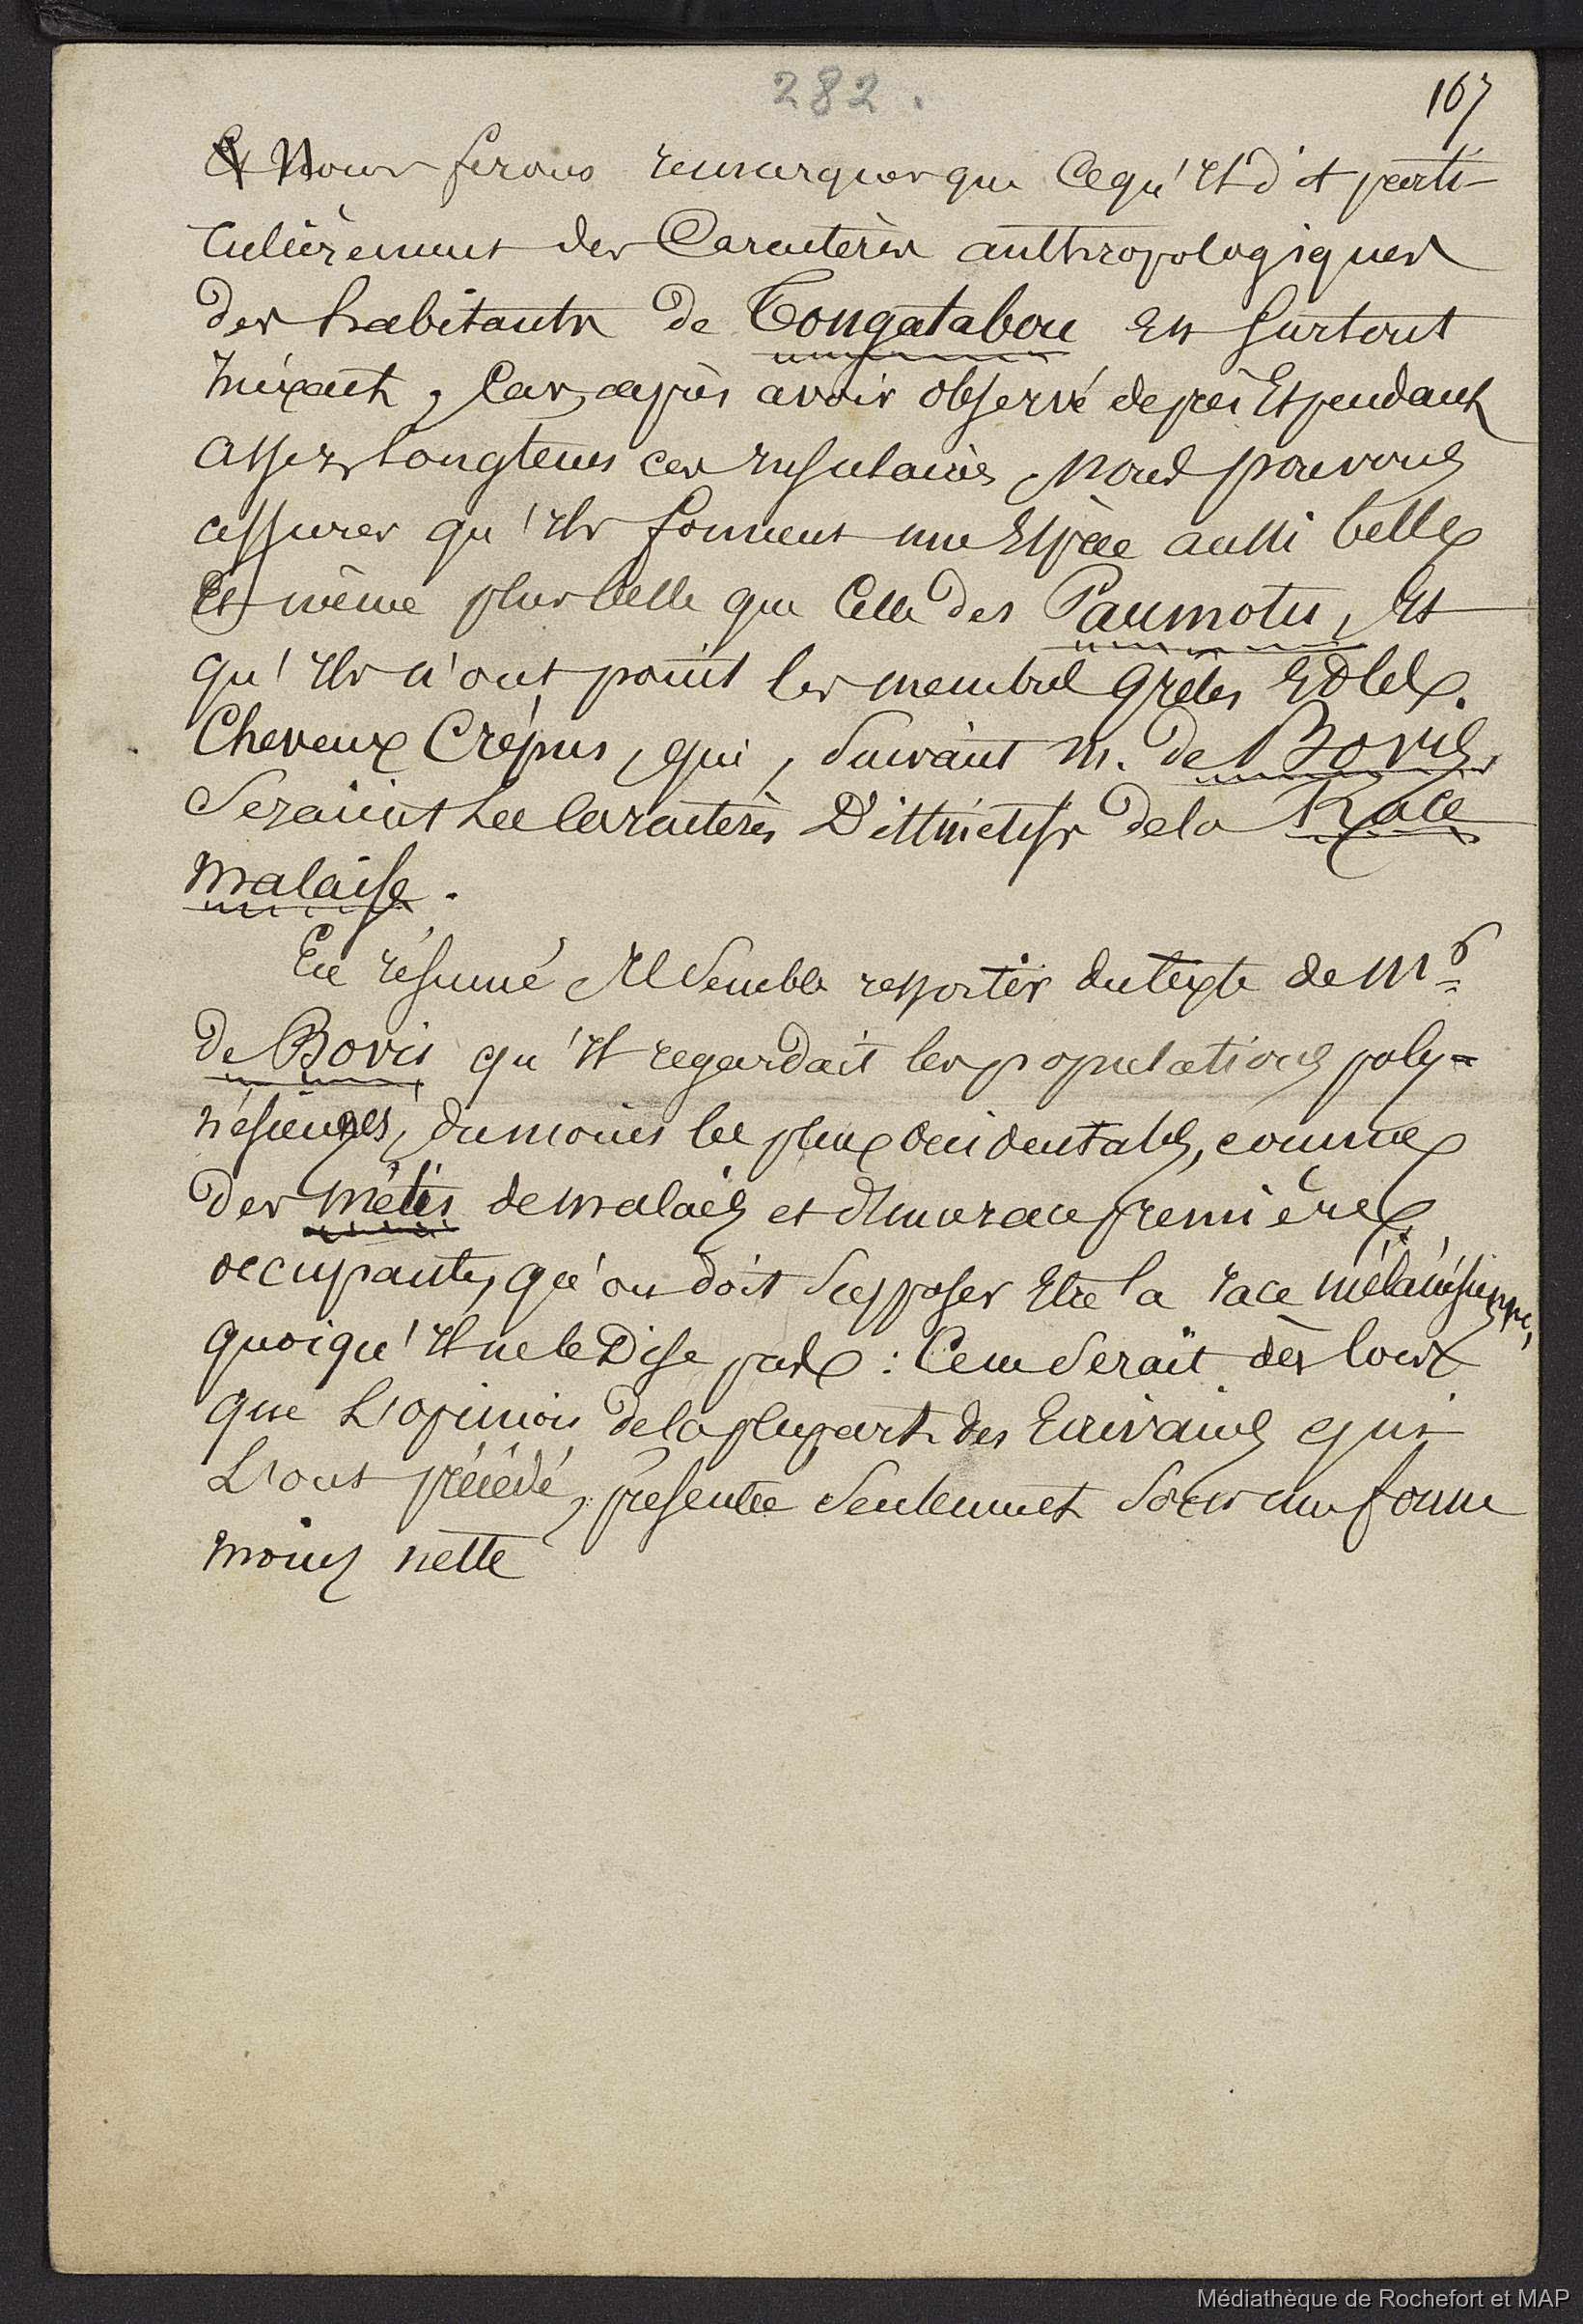 282.
167
Nous ferons remarquer que ce qu'il dit parti-
culièrement des Caractères anthropologiques
des habitants de Tongatabou est surtout
inéxact, Car, après avoir observé de près Et pendant
assez longtems ces insulaires, Nous pouvons
assurer qu'ils forment une Espèce aussi belle
Et même plus belle que Celle des Paumotu, Et
qu'ils n'ont point les membres grêles Et les
Cheveux Crépus, qui, Suivant M. de Bovis,
Seraient les Caractères Distinctifs de la Race
malaise.
En résumé Il Semble ressortir du texte de Mr
de Bovis qu'il regardait les populations poly-
nésiennes, du moins les plus occidentales, comme
des métis de malais et d'une race première
occupante, qu'on doit Supposer Etre la race mélanésienne,
quoiqu'il ne le Dise pas : Ce ne Serait dès lors
que L'opinion de la plupart des Ecrivains qui
L'ont précédé, présentée Seulement Sous une forme
moins nette
Médiathèque de Rochefort et MAP